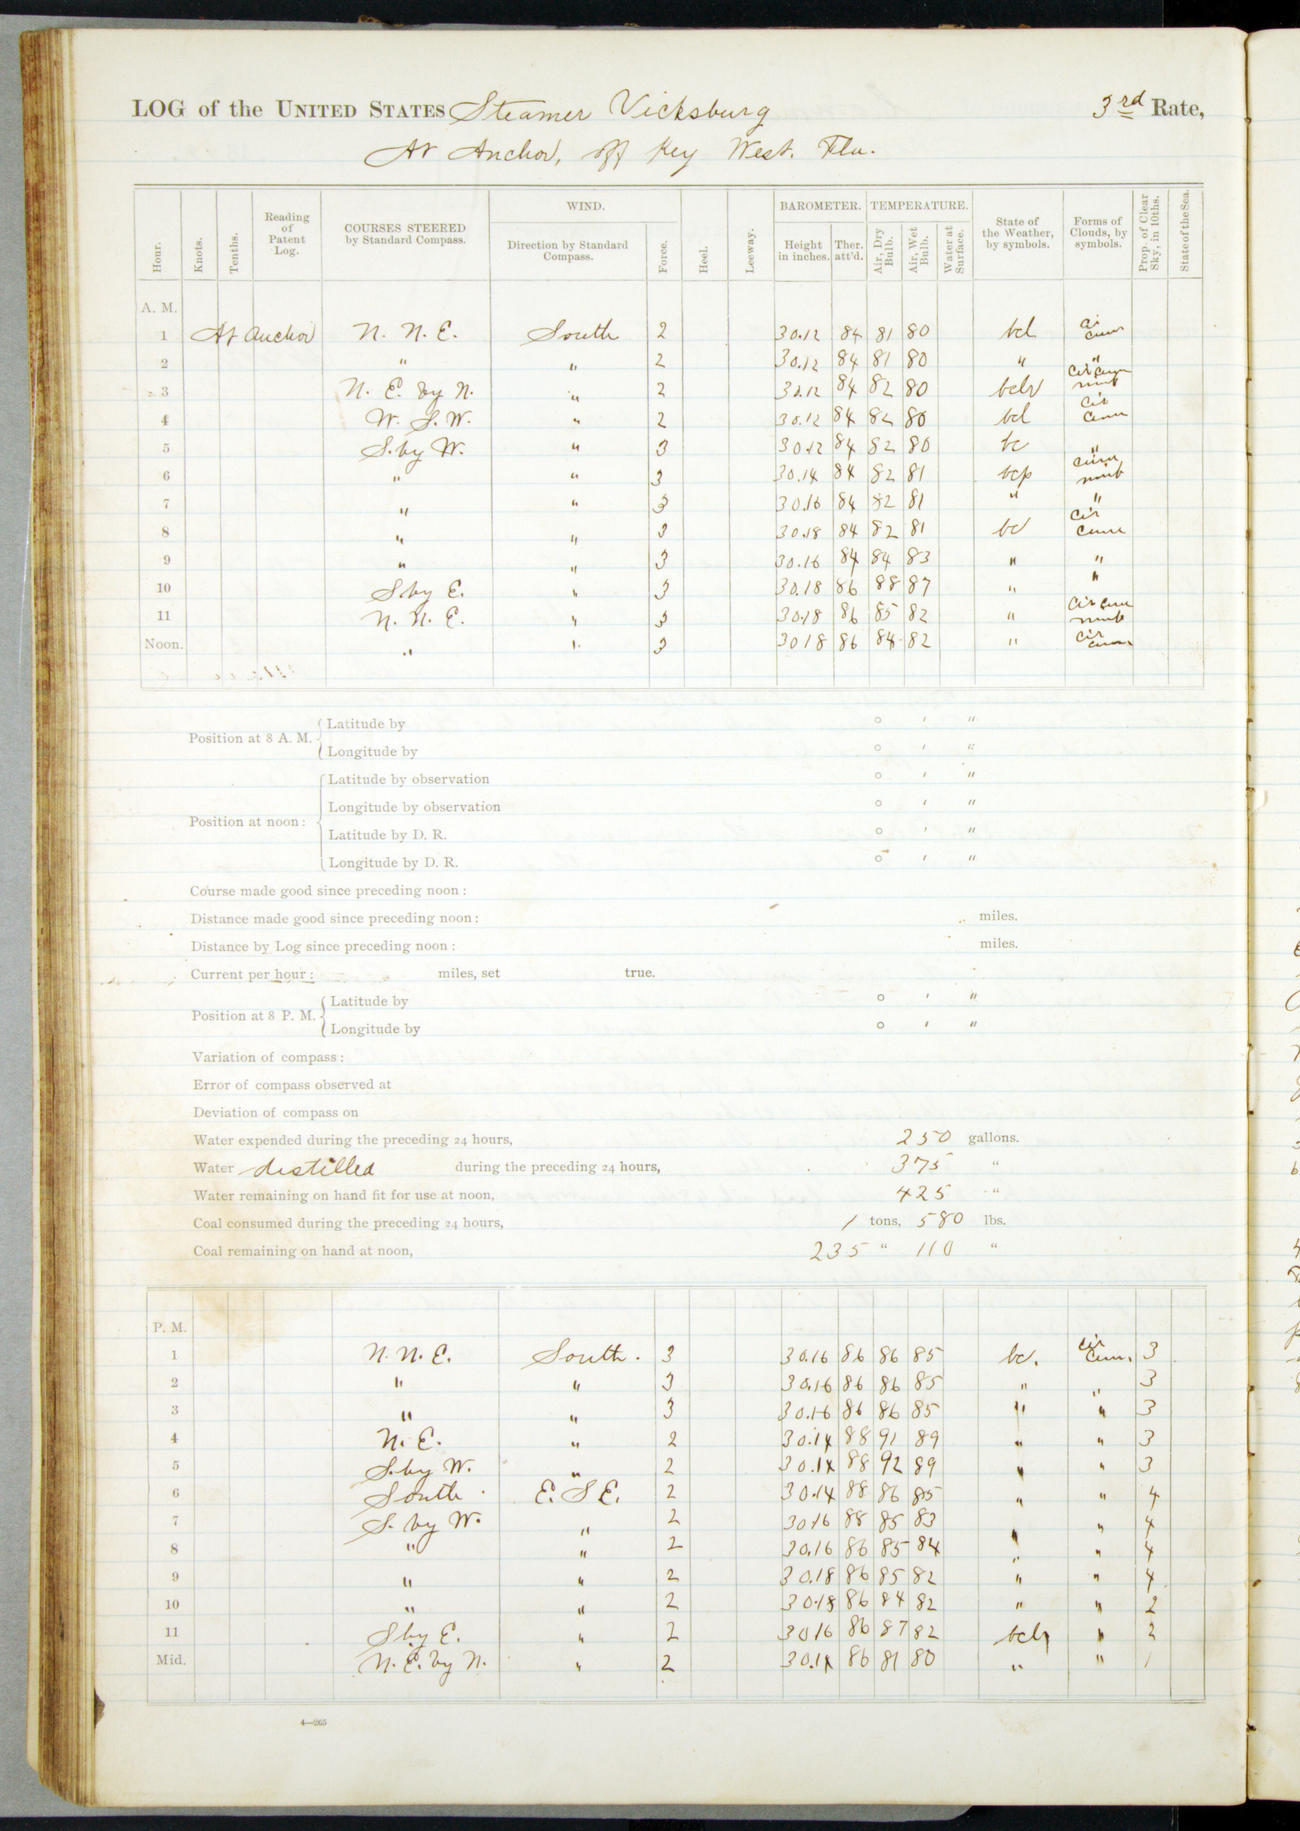 LOG of the UNITED STATES Steamer Vicksburg 3rd Rate,
At Anchor, off Key West. Fla.
Hour. Knots. Tenths. Reading of Patent Log. COURSES STEERED by Standard Compass. WIND. Direction by Standard Compass. Force. Heel. Leeway. BAROMETER. Height in inches. Ther. att'd. TEMPERATURE. Air, Dry Bulb. Air, Wet Bulb. Water at Surface. State of the Weather, by symbols. Forms of Clouds, by symbols. Prop. of Clear Sky, in 10ths. State of the Sea.
A. M.
1 At Anchor N. N. E. South 2 30.12 84 81 80 bcl cir cum
2 " " 2 30.12 84 81 80 " "
3 N. E. by N. " 2 30.12 84 82 80 cir cum nimb
4 W. S. W. " 2 30.12 84 82 80 bcl cir cum
5 S. by W. " 3 30.12 84 82 80 bc "
6 " " 3 30.14 84 82 81 bcp cum nimb
7 " " 3 30.16 84 82 81 " "
8 " " 3 30.18 84 82 81 bc cir cum
9 " " 3 30.16 84 84 83 " "
10 S. by E. " 3 30.18 86 88 87 " "
11 N. N. E. " 3 30.18 86 85 82 " cir cum nimb
Noon. " " 3 30 18 86 84 82 " cir cum
Position at 8 A. M. Latitude by ° ' "
Longitude by ° ' "
Position at noon: Latitude by observation ° ' "
Longitude by observation ° ' "
Latitude by D. R. ° ' "
Longitude by D. R. ° ' "
Course made good since preceding noon:
Distance made good since preceding noon: miles.
Distance by Log since preceding noon: miles.
Current per hour: miles, set true.
Position at 8 P. M. Latitude by ° ' "
Longitude by ° ' "
Variation of compass:
Error of compass observed at
Deviation of compass on
Water expended during the preceding 24 hours, 250 gallons.
Water distilled during the preceding 24 hours, 375 "
Water remaining on hand fit for use at noon, 425 "
Coal consumed during the preceding 24 hours, 1 tons, 580 lbs.
Coal remaining on hand at noon, 235 " 110 "
P. M.
1 N. N. E. South. 3 30.16 86 86 85 bc. cir cum. 3
2 " " 3 30.16 86 86 85 " " 3
3 " " 3 30.16 86 86 85 " " 3
4 N. E. " 2 30.14 88 91 89 " " 3
5 S. by W. " 2 30.14 88 92 89 " " 3
6 South E. S E. 2 30.14 88 86 85 " " 4
7 S. by W. " 2 30 16 88 85 83 " " 4
8 " " 2 30.16 86 85 84 " " 4
9 " " 2 30.18 86 85 82 " " 4
10 " " 2 30.18 86 84 82 " " 2
11 S by E. " 2 30 16 86 87 82 " 2
Mid. N. E. by N. " 2 30.14 86 81 80 " " 1
4—265